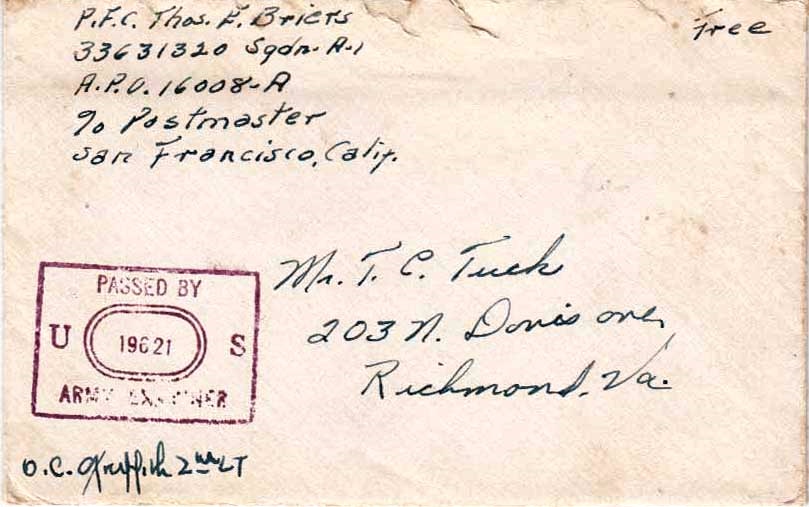 P.F.C. Thos. E. Briers
Free
33631320 Sqdn. A-1
A.P.O. 16008-A
c/o Postmaster
San Francisco, Calif.
Mr. T. C. Tuck
203 N. Davis ave,
Richmond, Va.
PASSED BY
U 19621 S
ARMY EXAMINER
O.C. Griffith 2nd LT